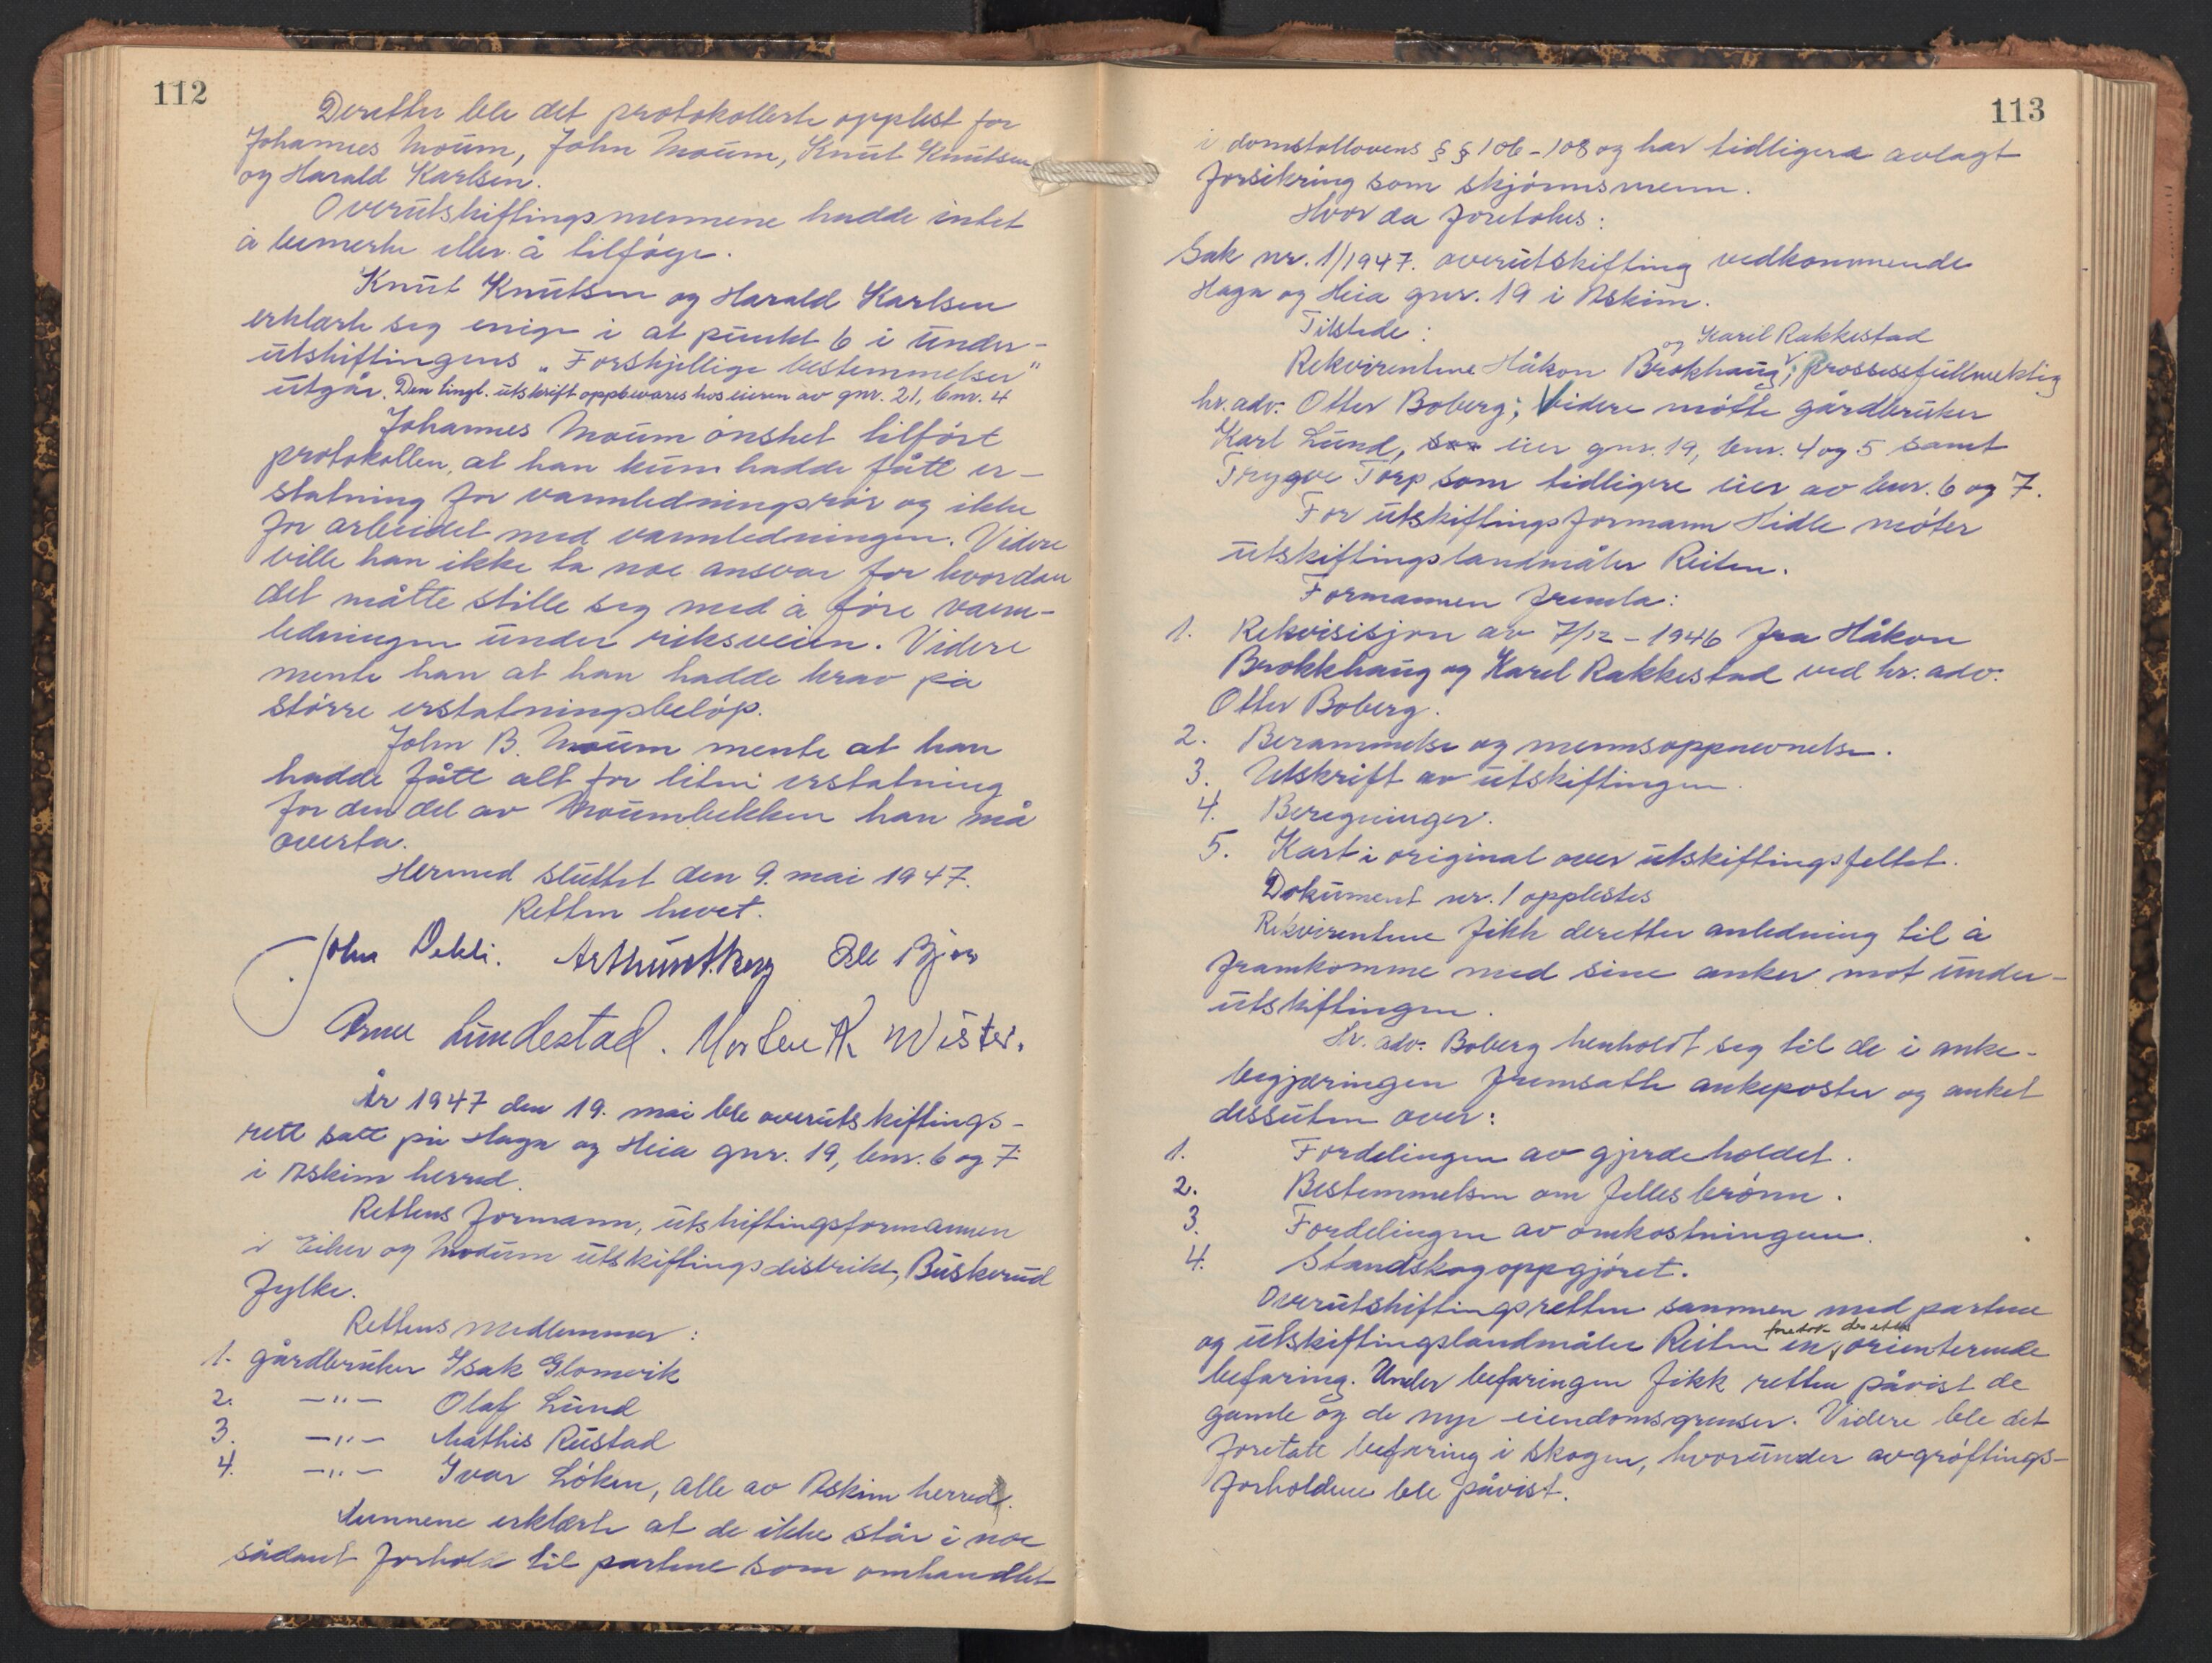 112
Deretter ble det protokollerte opplest for
Johannes Moum, John Moum, Knut Knutsen
og Harald Karlsen.
Overutskiftingsmennene hadde intet
å bemerke eller å tilføye.
Knut Knutsen og Harald Karlsen
erklærte seg enige i at punkt 6 i under-
utskiftingens „Forskjellige bestemmelser"
utgår. Den tingl. utskrift oppbevares hos eieren av gnr. 21, bnr. 4
Johannes Moum ønsket tilført
protokollen, at han kun hadde fått er-
statning for vannledningsrør og ikke
for arbeidet med vannledningen. Videre
ville han ikke ta noe ansvar for hvordan
det måtte stille seg med å føre vann-
ledningen under riksveien. Videre
mente han at han hadde krav på
større erstatningsbeløp.
John B. Moum mente at han
hadde fått alt for liten erstatning
for den del av Moumbekken han må
overta.
Hermed sluttet den 9. mai 1947.
Retten hevet.
John Dehli. Arthur Berg Ole Bjør
Arne Lundestad. Morten K. Wister.
År 1947 den 19. mai ble overutskiftings-
rett satt på Haga og Heia gnr. 19, bnr. 6 og 7
i Askim herred.
Rettens formann, utskiftingsformannen
i Eiker og Modum utskiftingsdistrikt, Buskerud
fylke.
Rettens medlemmer:
1. gårdbruker Isak Glomvik
2. —"— Olaf Lund
3. —"— Mathis Rustad
4. —"— Ivar Løken, alle av Askim herred.
Mennene erklærte at de ikke står i noe
sådant forhold til partene som omhandlet
113
i domstollovens §§ 106-108 og har tidligere avlagt
forsikring som skjønnsmenn.
Hvor da foretokes:
Sak nr. 1/1947. overutskifting vedkommende
Haga og Heia gnr. 19 i Askim.
Tilstede:
og Karel Rakkestad
Rekvirentene Håkon Brokhaug, prossessfullmektig
hr. adv. Otter Boberg; Videre møtte gårdbruker
Karl Lund, eier gnr. 19, bnr. 4 og 5 samt
Trygve Torp som tidligere eier av bnr. 6 og 7.
For utskiftingsformann Hidle møter
utskiftingslandmåler Reiten.
Formannen fremla:
1. Rekvisisjon av 7/12-1946 fra Håkon
Brokkhaug og Karel Rakkestad ved hr. adv.
Otter Boberg.
2. Berammelse og mennsoppnevnelse.
3. Utskrift av utskiftingen.
4. Beregninger.
5. Kart i original over utskiftingsfeltet.
Dokument nr. 1 opplestes
Rekvirentene fikk deretter anledning til å
framkomme med sine anker mot under-
utskiftingen.
Hr. adv. Boberg henholdt seg til de i anke-
begjæringen fremsatte ankeposter og anket
dessuten over:
1. Fordelingen av gjerdeholdet.
2. Bestemmelsen om felles brønn.
3. Fordelingen av omkostningene.
4. Standskogoppgjøret.
Overutskiftingsretten sammen med partene
foretok deretter
og utskiftingslandmåler Reiten en orienterende
befaring. Under befaringen fikk retten påvist de
gamle og de nye eiendomsgrenser. Videre ble det
foretatt befaring i skogen, hvorunder avgrøftings-
forholdene ble påvist.